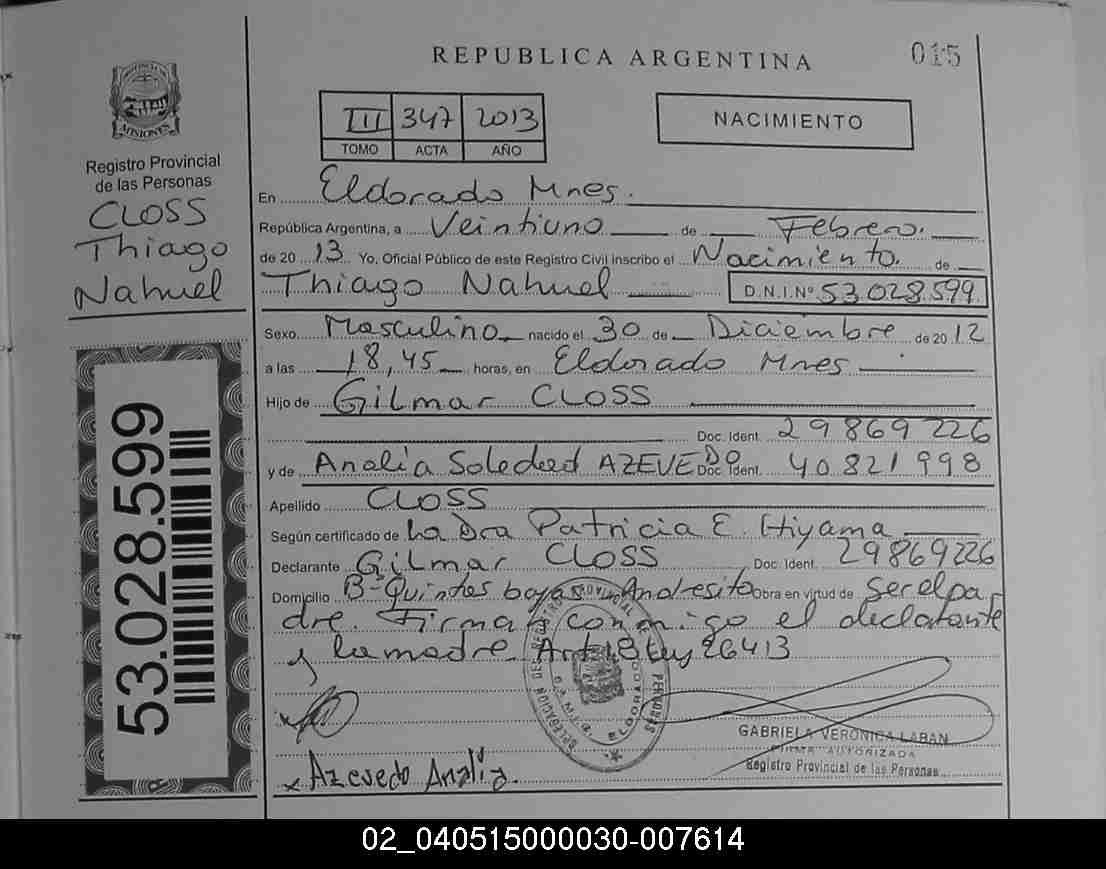 REPUBLICA ARGENTINA
015
PROVINCIA DE MISIONES
Registro Provincial
de las Personas
CLOSS
Thiago
Nahuel
53.028.599
III 347 2013
TOMO ACTA AÑO
NACIMIENTO
En Eldorado Mnes.
República Argentina, a Veintiuno de Febrero.
de 20 13 Yo. Oficial Público de este Registro Civil inscribo el Nacimiento. de
Thiago Nahuel D.N.I.Nº 53.028.599
Sexo Masculino nacido el 30 de Diciembre de 20 12
a las 18,45 horas, en Eldorado Mnes
Hijo de Gilmar CLOSS
Doc. Ident. 29869226
y de Analia Soledad AZEVEDO Doc. Ident. 40821998
Apellido CLOSS
Según certificado de La Dra Patricia E. Hiyama
Declarante Gilmar CLOSS Doc. Ident. 29869226
Domicilio Bº Quintas bajas Andresito Obra en virtud de Ser el pa
dre. Firman conmigo el declarante
y la madre Art 18 Ley 26413
GABRIELA VERONICA LABAN
FIRMA AUTORIZADA
Registro Provincial de las Personas
x Azevedo Analia.
02_040515000030-007614